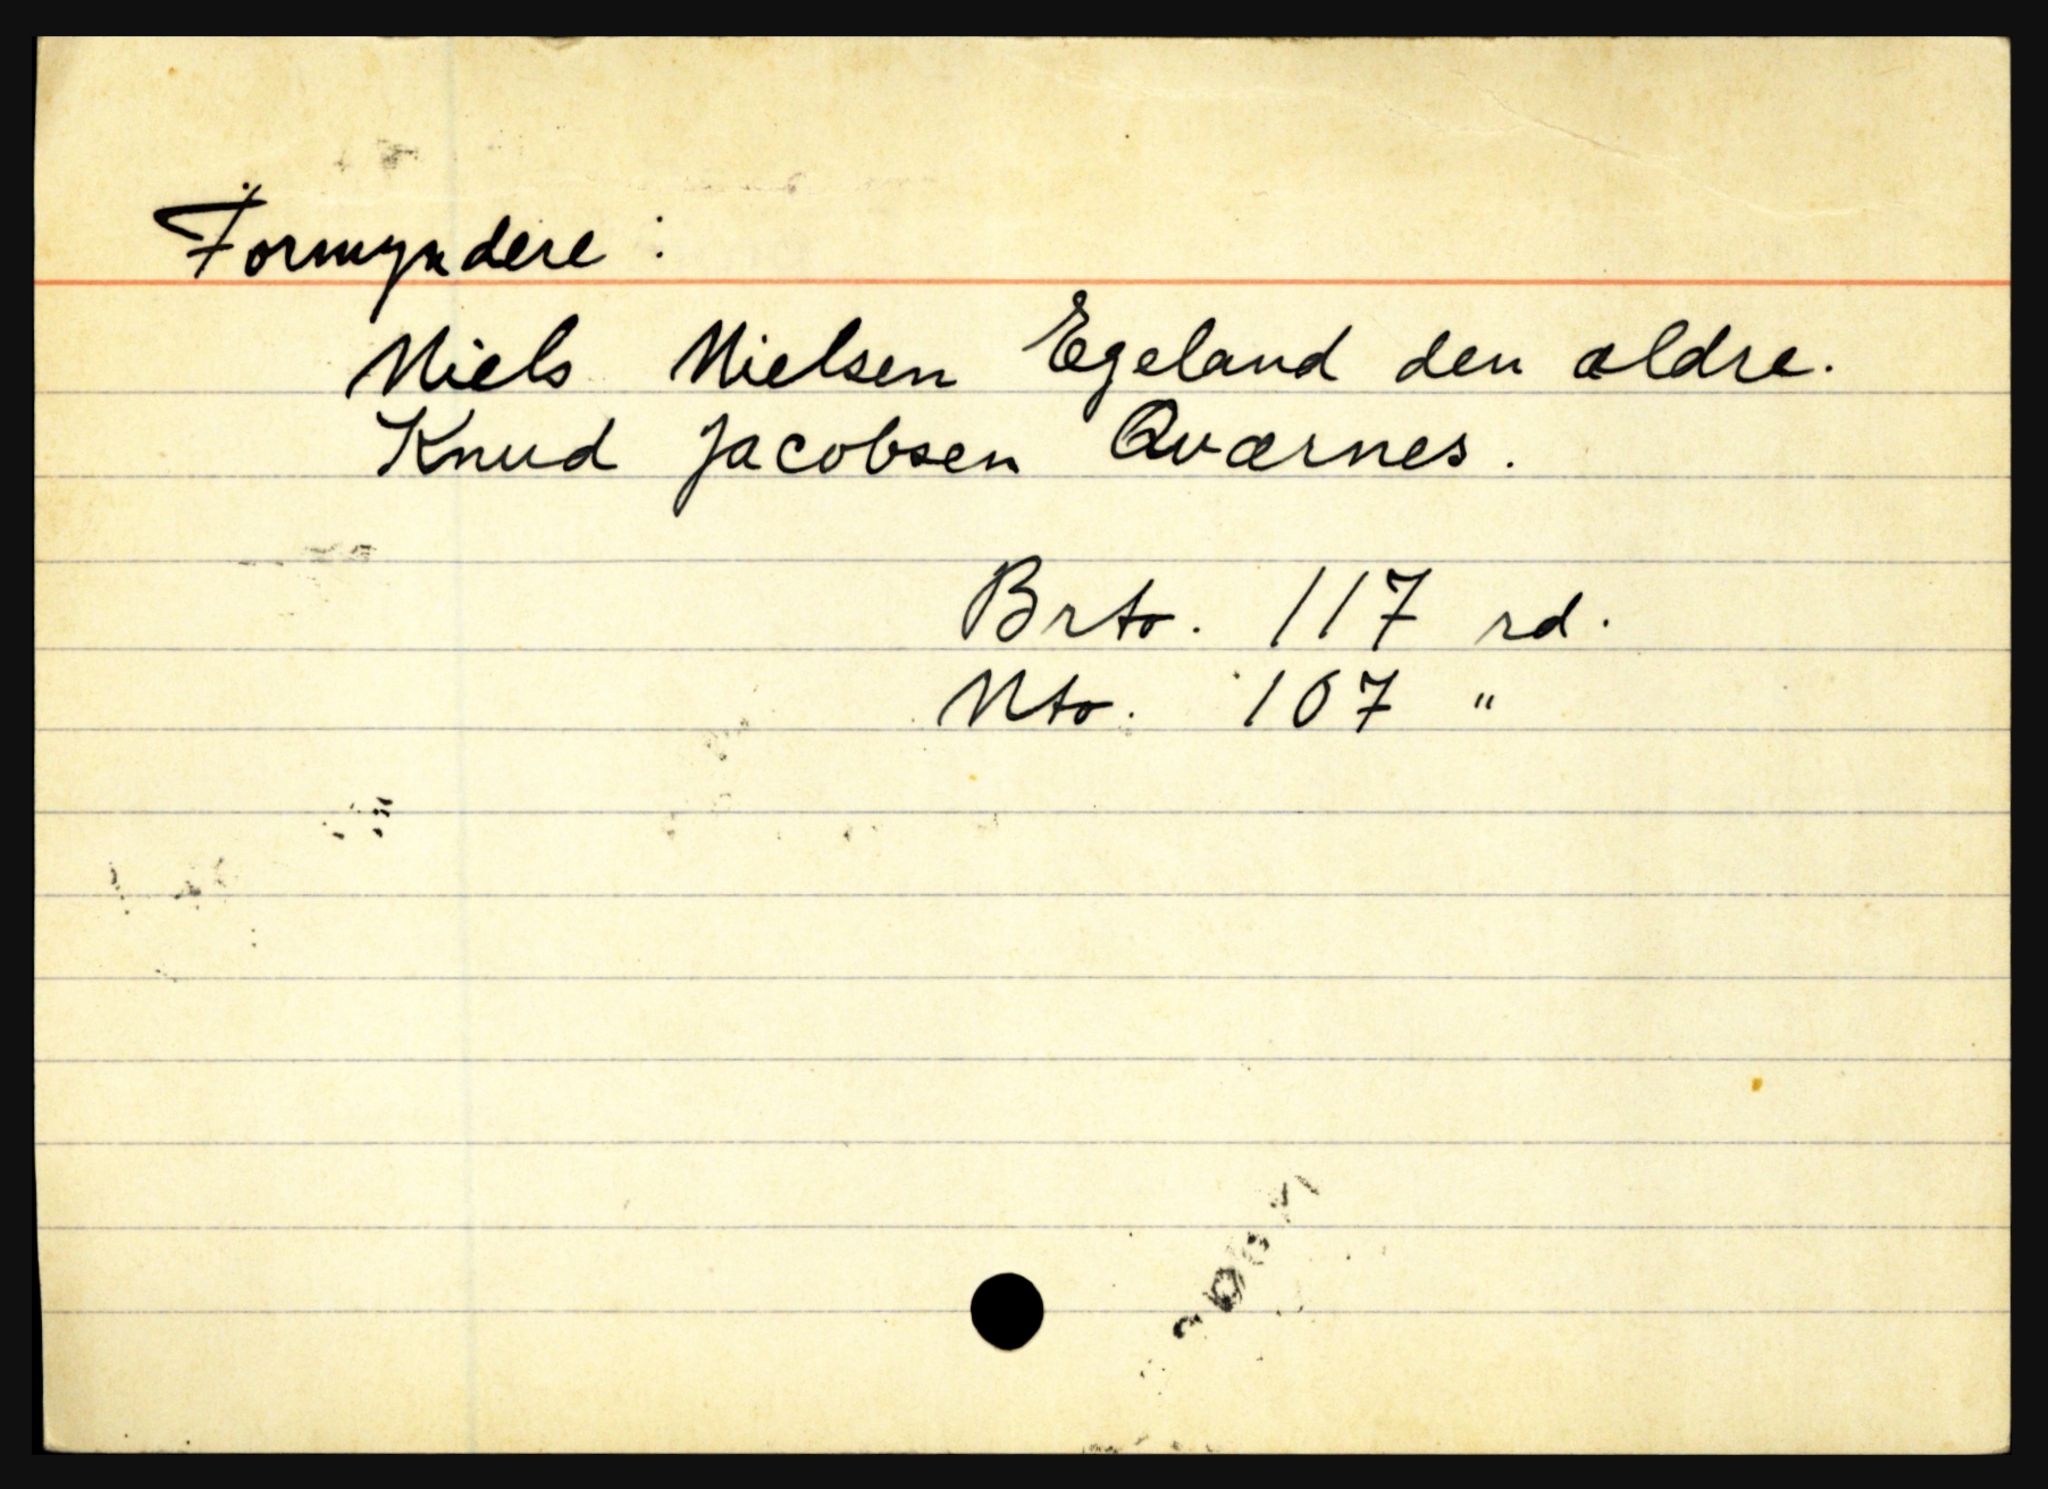 Formyndere :
Niels Nielsen Egeland den ældre.
Knud Jacobsen Qværnes.
Brto. 117 rd.
Nto. 107 "